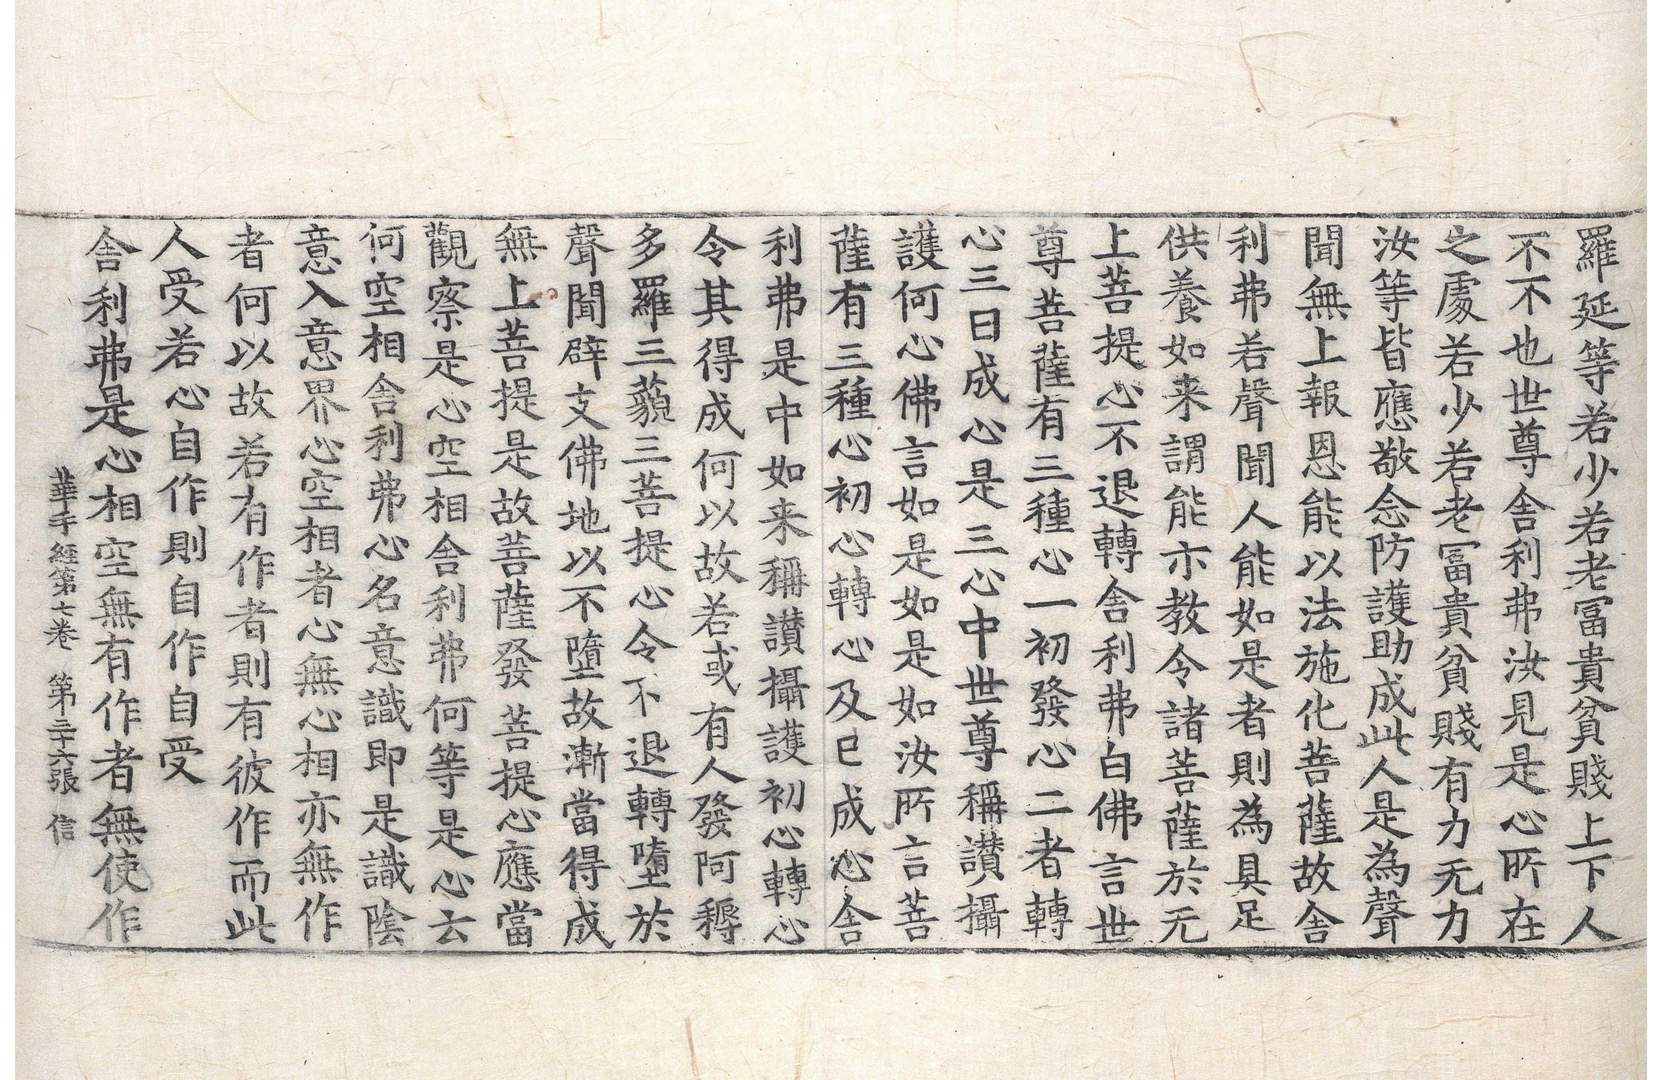 羅延等若少若老冨貴貧賤上下人
不不也世尊舎利弗汝見是心所在
之處若少若老冨貴貧賤有力无力
汝等皆應敬念防護助成此人是為聲
聞無上報恩能以法施化菩薩故舎
利弗若聲聞人能如是者則為具足
供養如来謂能亦教令諸菩薩於无
上菩提心不退轉舎利弗白佛言世
尊菩薩有三種心一初發心二者轉
心三曰成心是三心中世尊稱讃攝
護何心佛言如是如是如汝所言菩
薩有三種心初心轉心及已成心舎
利弗是中如来稱讃攝護初心轉心
令其得成何以故若或有人發阿耨
多羅三藐三菩提心令不退轉墮於
聲聞辟支佛地以不墮故漸當得成
無上菩提是故菩薩發菩提心應當
觀察是心空相舎利弗何等是心云
何空相舎利弗心名意識即是識陰
意入意界心空相者心無心相亦無作
者何以故若有作者則有彼作而此
人受若心自作則自作自受
舎利弗是心相空無有作者無使作
華手經第七卷 第三十六張 信